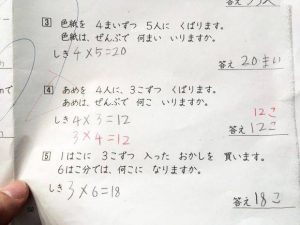 3 色紙を 4まいずつ 5人に くばります。
色紙は、ぜんぶで 何まい いりますか。
しき 4×5=20
答え 20まい
4 あめを 4人に、3こずつ くばります。
あめは、ぜんぶで 何こ いりますか。
しき 4×3=12
3×4=12
12こ
答え 12こ
5 1はこに 3こずつ 入った おかしを 買います。
6はこ分では、何こに なりますか。
しき 3×6=18
答え 18こ